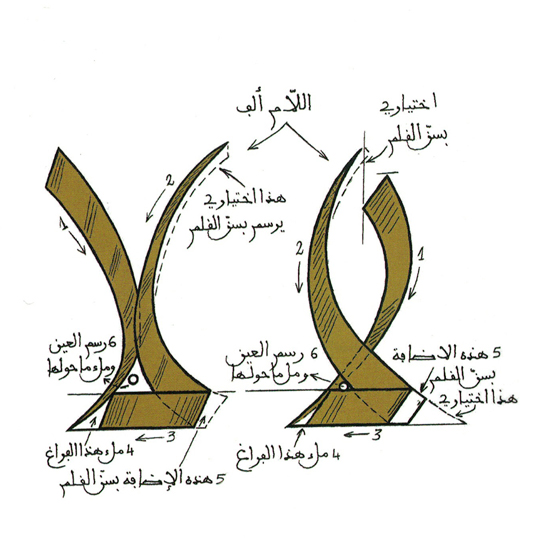 اللاّم ألف
اختياري
بسنّ القلم
2
هذا اختياري
يرسم بسنّ القلم
1
2
1
6 رسم العين
وملء ما حولها
6 رسم العين
وملء ما حولها
5 هذه الإضافة
بسنّ القلم
هذا اختياري
3
4 ملء هذا الفراغ
5 هذه الإضافة بسنّ القلم
3
4 ملء هذا الفراغ